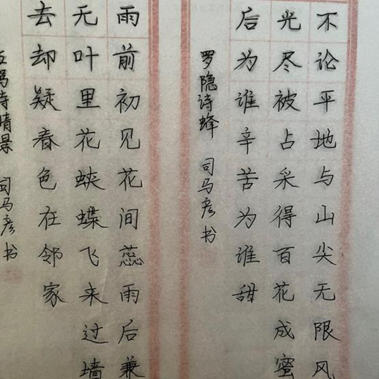 不论平地与山尖无限风
光尽被占采得百花成蜜
后为谁辛苦为谁甜
罗隐诗蜂 司马彦书
雨前初见花间蕊雨后兼
无叶里花蛱蝶飞来过墙
去却疑春色在邻家
王驾诗晴景 司马彦书